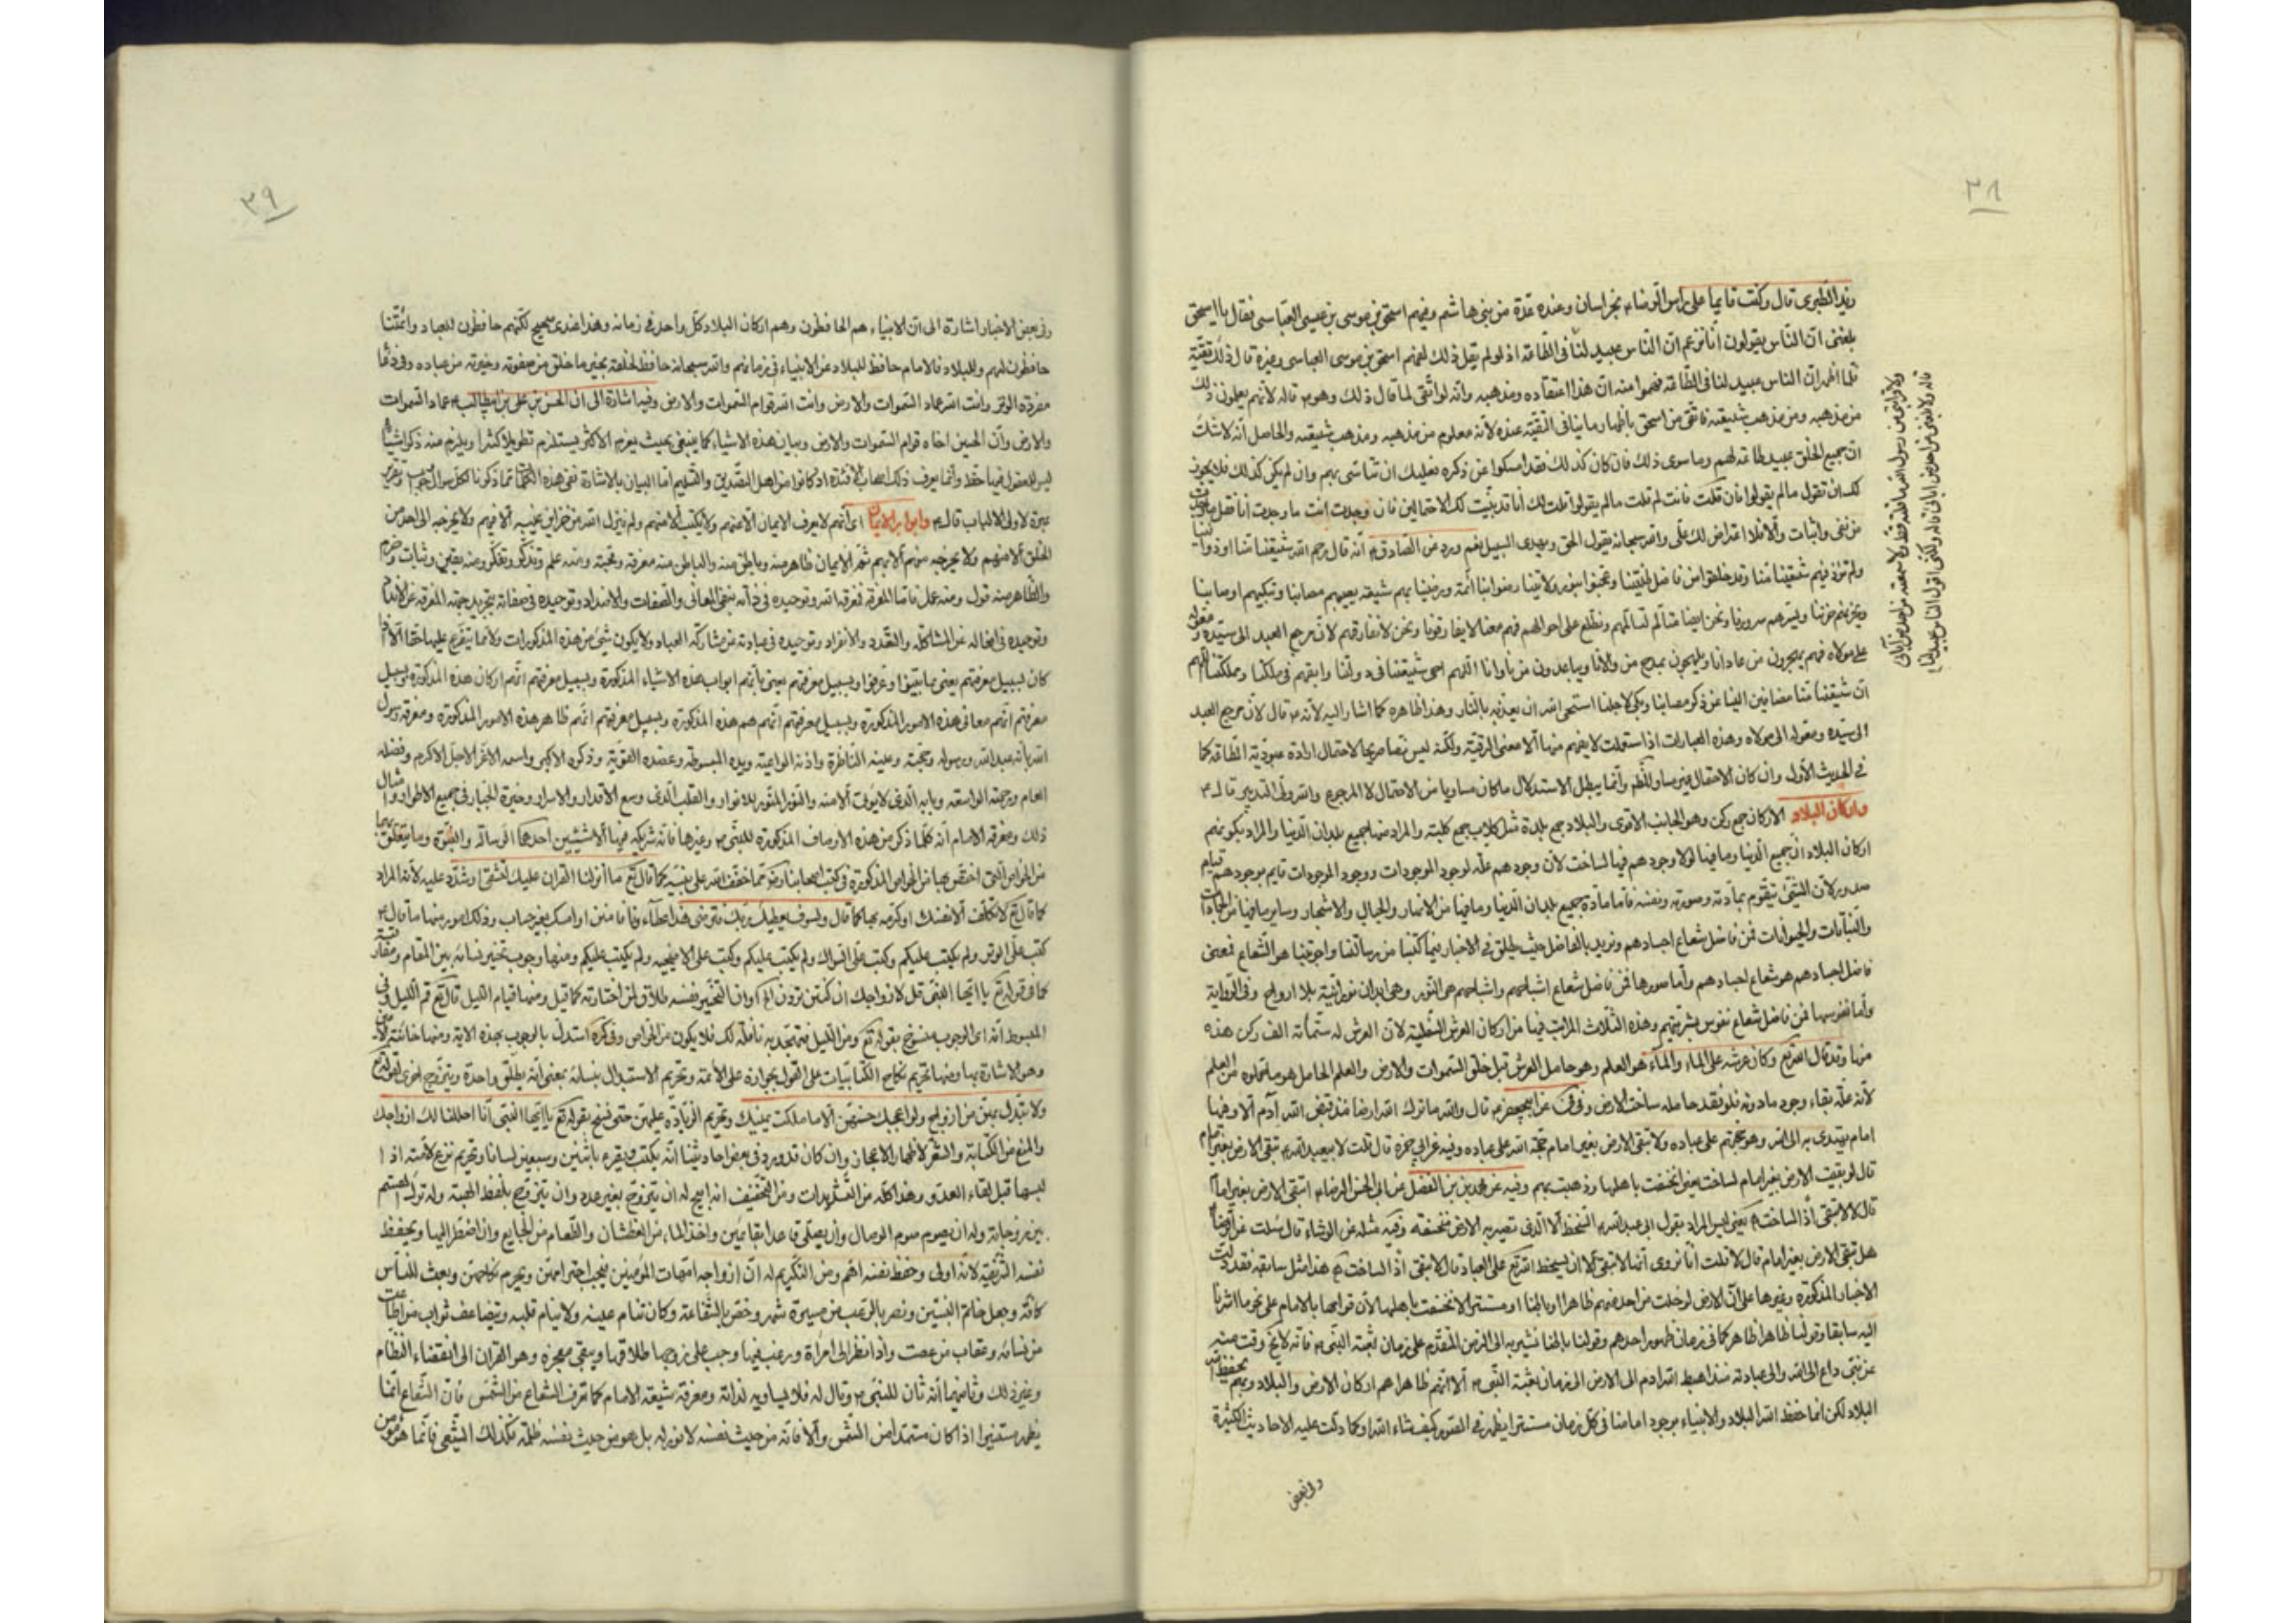 ٣٨
زيد الطبرى قال وكنت قايما على راس الرضاء بخراسان وعنده عدة من بنى هاشم وفيهم اسحق بن موسى بن عيسى العباسى فقال يا اسحق
بلغنى ان الناس يقولون انا نزعم ان الناس عبيد لنا فى الطاعة اذ لو لم يقل ذلك لفهم اسحق بن موسى العباسى وغيره قال ذلك تقية
فلما اظهر ان الناس عبيد لنا فى الطاعة فهموا منه ان هذا اعتقاده ومذهبه وانه لو اتقى لما قال ذلك وهو قاله لانهم يعلمون ذلك
من مذهبه ومن مذهب شيعته فاتقى من اسحق باظهار ما ينافى التقية عنده لانه معلوم من مذهبه ومذهب شيعته والحاصل انه لا شك
ان جميع الخلق عبيد طاعة لهم وما سوى ذلك فان كان كذلك فقد امسكوا عن ذكره فعليك ان تتاسى بهم وان لم يكن كذلك فلا يجوز
لك ان تقول ما لم يقولوا فان قلت فانت لم قلت ما لم يقولوا قلت لك انا قد بينت لك الاحتمالين فان وجدت انت ما وجدت انا فقل
من نفى واثبات والا فلا اعتراض لك على والله سبحانه يقول الحق ويهدى السبيل نعم ورد عن الصادق انه قال رحم الله شيعتنا
ولم نوذ فيهم شيعتنا منا وقد خلقوا من فاضل طينتنا وعجنوا بنور ولايتنا رضوا بنا ائمة ورضينا بهم شيعة يصيبهم مصابنا وتبكيهم اوصابنا
ويحزنهم حزننا ويسرهم سرورنا ونحن ايضا نتالم لتالمهم ونطلع على احوالهم فهم معنا لا يفارقونا ونحن لا نفارقهم لان مرجع العبد الى سيده ومعوله
على مولاه فهم يهجرون من عادانا ويلهجون بمدح من والانا ويباعدون من ناوانا اللهم احى شيعتنا فى دولتنا وابقهم فى ملكنا ومملكتنا اللهم
ان شيعتنا منا مضافين الينا فمن ذكر مصابنا وبكى لاجلنا استحى الله ان يعذبه بالنار وهذا ظاهره كما اشار اليه لانه قال لان مرجع العبد
الى سيده ومعوله الى مولاه وهذه العبارات اذا استعملت لا يفهم منها الا معنى الرقية ولكنه ليس نصا صريحا لاحتمال ارادة عبودية الطاعة كما
فى الحديث الاول وان كان الاحتمال غير مساو للظهر وانما يبطل الاستدلال ما كان مساويا من الاحتمال لا المرجوح والله ولى التدبير قال
واركان البلاد الاركان جمع ركن وهو الجانب الاقوى والبلاد جمع بلدة مثل كلاب جمع كلبة والمراد منها جميع بلدان الدنيا والمراد بكونهم
اركان البلاد ان جميع الدنيا وما فيها لولا وجودهم فيها لساخت لان وجودهم علة لوجود الموجودات ووجود الموجودات قايم بوجودهم قيام
صدور لان الشئ يتقوم بمادته وصورته ونفسه فاما مادة جميع بلدان الدنيا وما فيها من الانهار والجبال والاشجار وساير ما فيها من الجمادات
والنباتات والحيوانات فمن فاضل شعاع اجسادهم ونريد بالفاضل حيث يطلق فى الاخبار فيما كتبنا من رسائلنا واجوبتنا هو الشعاع فمعنى
فاضل اجسادهم هو شعاع اجسادهم واما صورها فمن فاضل شعاع اشباحهم واشباحهم هى النور وهى ابدان نورانية بلا ارواح وفى الرواية
واما نفوسها فمن فاضل شعاع نفوس بشريتهم وهذه الثلاث المراتب فيها من اركان العرش السفلية لان العرش له ستمائة الف ركن هذه
منها وقد قال الله تع وكان عرشه على الماء والماء هو العلم وهو حامل العرش قبل خلق السموات والارض والعلم الحامل هو ما
لانه علة بقاء وجود ما دونه فلو فقد حامله ساخت الارض وفى عن ابى جعفر قال والله ما ترك الله ارضا منذ قبض الله آدم الا وفيها
امام يهتدى به الى الله وهو حجته على عباده ولا تبقى الارض بغير امام حجة الله على عباده وفيه عن ابى حمزة قال قلت لابى عبد الله تبقى الارض بغير امام
قال لو بقيت الارض بغير امام لساخت يعنى انخسفت باهلها وذهبت بهم وفيه عن محمد بن الفضل عن ابى الحسن الرضا اتبقى الارض بغير امام
قال لا لا تبقى اذا لساخت يعنى ليس المراد بقول ابى عبد الله السخط الا الذى تصير به الارض منخسفة وفيه مثله عن الوشاء قال سئلت
هل تبقى الارض بغير امام قال لا قلت انا نروى انها لا تبقى الا ان يسخط الله تع على العباد قال لا تبقى اذا لساخت هذا مثل سابقه فقد دلت
الاخبار المذكورة وغيرها على ان الارض لو خلت من احد منهم ظاهرا او باطنا او مستترا لانخسفت باهلها لان قوامها بالامام على نحو ما اشرنا
اليه سابقا وقولنا ظاهرا ظاهر كما فى زمان ظهور احدهم وقولنا باطنا نشير به الى الزمن المتقدم على زمان بعثة النبى فانه لا يخ وقت منه
عن نبى داع الى الله والى عبادته منذ اهبط الله ادم الى الارض الى زمان بعثة النبى الا انهم ظاهرا هم اركان الارض والبلاد وبهم يحفظ الله
البلاد لكن انما حفظ الله البلاد والانبياء بوجود امامنا فى كل زمان مستترا يظهر فى الصور كيف شاء الله وكما دلت عليه الاحاديث الكثيرة
وفى بعض
٣٩
وفى بعض الاخبار اشارة الى ان الانبياء هم الحافظون وهم اركان البلاد كل واحد فى زمانه وهذا عندى صحيح لكنهم حافظون للعباد وائمتنا
حافظون لهم وللبلاد فالامام حافظ للبلاد عن الانبياء فى زمانهم والله سبحانه حافظ لخلقه بخير ما خلق من صفوته وخيرته من عباده وفى دعا
مفردة الوتر وانت الله عماد السموات والارض وانت الله قوام السموات والارض وفيه اشارة الى ان الحسن بن على بن ابيطالب عماد السموات
والارض وان الحسين اخاه قوام السموات والارض وبيان هذه الاشياء كما ينبغى بحيث يعرفه الاكثر يستلزم تطويلا كثيرا ويلزم منه ذكر اشياء
ليس للعقول فيها حظ وانما يعرف ذلك اصحاب الافئدة اذ كانوا من اهل التصديق والتسليم اما البيان بالاشارة ففى هذه الكلمات مما ذكرنا لكل سوال جواب
عبرة لاولى الالباب قال وابواب الايمان اى انهم لا يعرف الايمان الا عنهم ولا يكتب الا منهم ولم ينزل الله من خزاين غيبه الا فيهم ولا يخرجه الى احد من
الخلق الا منهم ولا يخرجه منهم الا بهم ثم الايمان ظاهر منه وباطن منه والباطن منه معرفة ومحبة ومنه علم وتذكر وتفكر ومنه يقين وثبات وعزم
والظاهر منه قول ومنه عمل فاما المعرفة فمعرفة الله وتوحيده فى ذاته بنفى المعانى والصفات والاضداد وتوحيده فى صفاته بتجريد جهة المعرفة عن الانداد
وتوحيده فى افعاله عن المشاكلة والتعدد والانفراد وتوحيده فى عبادته عن مشاركة العباد ولا يكون شئ من هذه المذكورات ولا ما يتفرع عليها حقا الا اذا
كان بسبيل معرفتهم يعنى بما بينوا وعرفوا وبسبيل معرفتهم يعنى بانهم ابواب هذه الاشياء المذكورة وبسبيل معرفتهم انهم اركان هذه المذكورة وبسبيل
معرفتهم انهم معانى هذه الامور المذكورة وبسبيل معرفتهم انهم هم هذه المذكورة وبسبيل معرفتهم انهم ظاهر هذه الامور المذكورة ومعرفة رسول
الله بانه عبد الله ورسوله وحجته وعينه الناظرة واذنه الواعية ويده المبسوطة وعضده القوية وذكره الاكبر واسمه الاعز الاجل الاكرم وفضله
العام ورحمته الواسعة وبابه الذى لا يؤتى الا منه والنور المنور للانوار والقلب الذى وسع الاقدار والاسرار وخيرة الجبار فى جميع الاطوار وامثال
ذلك ومعرفة الامام انه كلما ذكر من هذه الاوصاف المذكورة للنبى وغيرها فانه شريكه فيها الا شيئين احدهما الرسالة والنبوة وما يتعلق بهما
من الخواص التى اختص بها من الخواص المذكورة فى كتب اصحابنا مما خفف الله على نبيه كما قال تع ما انزلنا القران عليك لتشقى او شدد عليه لانه المراد
كما قال تع لا تكلف الا نفسك او كرمه بها كما قال ولسوف يعطيك ربك فترضى هذا عطاؤنا فامنن او امسك بغير حساب وذلك امور منها ما قال
كتب على الوتر ولم يكتب عليكم وكتب على السواك ولم يكتب عليكم وكتب على الاضحية ولم يكتب عليكم ومنها وجوب تخيير نسائه بين المقام ومفارقته
كما فى قوله تع يا ايها النبى قل لازواجك ان كنتن تردن الخ وان التخيير نفسه طلاق لمن اختارته كما قيل ومنها قيام الليل قال تع قم الليل وفى
المبسوط انه اى الوجوب منسوخ بقوله تع ومن الليل فتهجد به نافلة لك فلا يكون من الخواص وفى كره استدل بالوجوب بهذه الاية ومنها خائنة الاعين
وهو الاشارة بها ومنها تحريم نكاح الكتابيات على القول بجوازه على الائمة وتحريم الاستبدال بنسائه بمعنى انه يطلق واحدة ويتزوج اخرى لقوله تع
ولا تبدل بهن من ازواج ولو اعجبك حسنهن الا ما ملكت يمينك وتحريم الزيادة عليهن حتى نسخ بقوله تع يا ايها النبى انا احللنا لك ازواجك
والمنع من الكتابة والشعر لاظهار الاعجاز وان كان قد ورد فى بعض احاديثنا انه يكتب ويقرء باثنين وسبعين لسانا وتحريم نزع لامته اذا
لبسها قبل لقاء العدو وهذا كله من التشديدات ومن التخفيف انه ابيح له ان يتزوج بغير عدد وان يتزوج بلفظ الهبة وله ترك القسم
بين زوجاته وله ان يصوم صوم الوصال وان يصلى قاعدا بقايمين واخذ الماء من العطشان والطعام من الجايع وان اضطر اليها ويحفظ
نفسه الشريفة لانه اولى وحفظ نفسه اهم ومن التكريم له ان ازواجه امهات المؤمنين فيجب احترامهن ويحرم نكاحهن وبعث للناس
كافة وجعل خاتم النبيين ونصر بالرعب من مسيرة شهر وخص بالشفاعة وكان تنام عينه ولا ينام قلبه ويضاعف ثواب من اطاعت
من نسائه وعقاب من عصت واذا نظر الى امراة ورغب فيها وجب على زوجها طلاقها وبقى معجزه وهو القران الى انقضاء النظام
وغير ذلك وثانيهما انه ثان للنبى وتال له فلا يساويه لذاته ومعرفة شيعة الامام كما تعرف الشعاع من الشمس فان الشعاع انما
يظهر مستنيرا اذا كان مستمدا من الشمس والا فانه من حيث نفسه لا نور له بل هو من حيث نفسه ظلمة فكذلك الشيعى فانما هو مومن